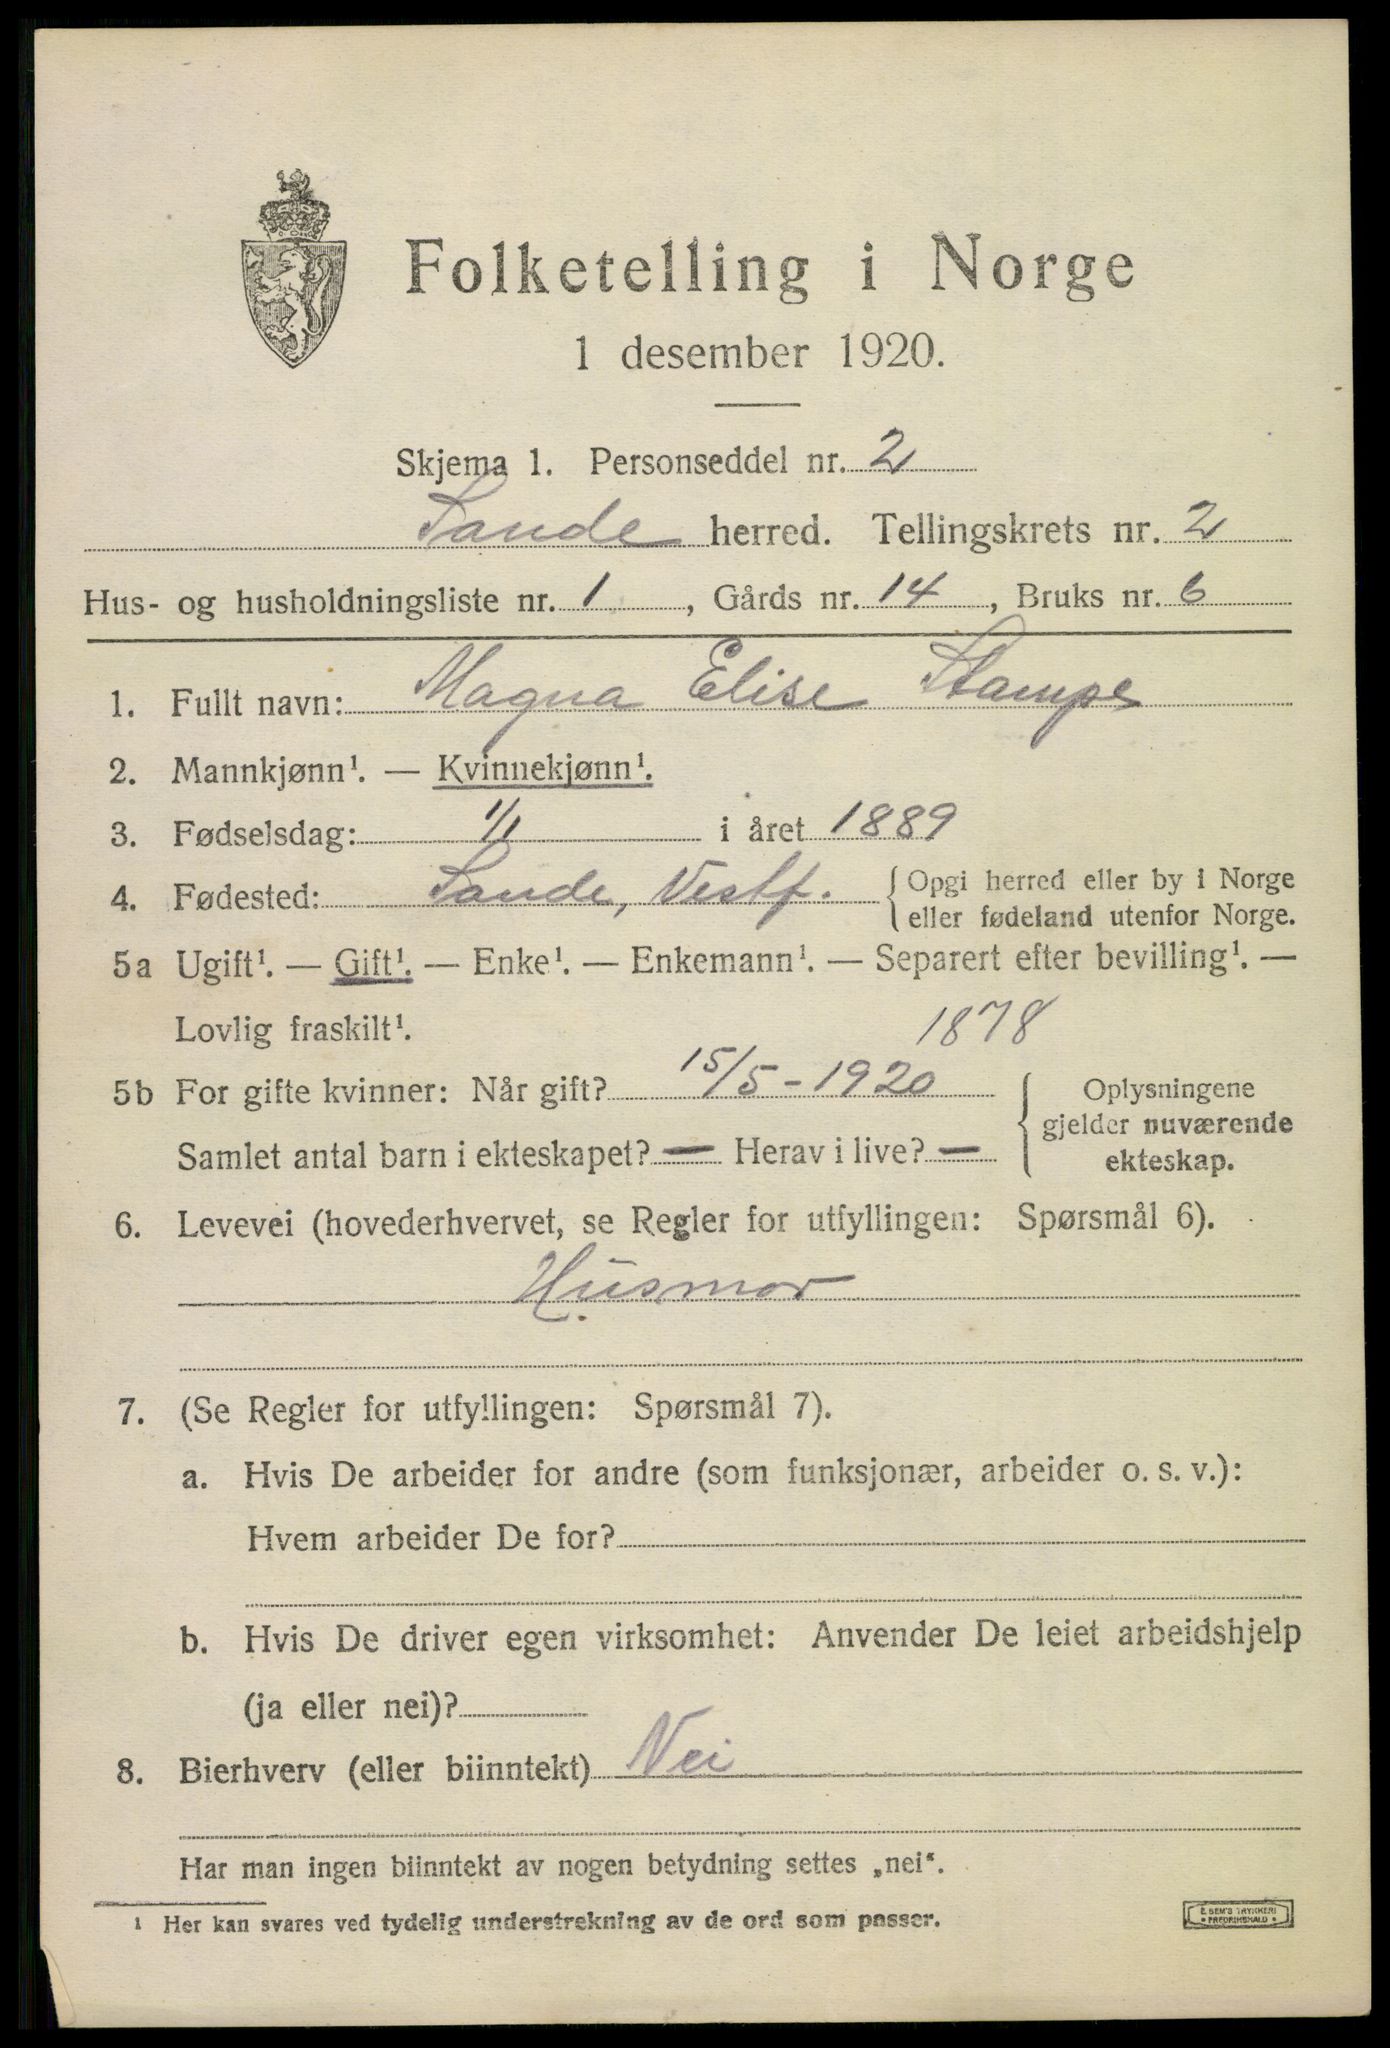 Folketelling i Norge
1 desember 1920.
Skjema 1. Personseddel nr. 2
Sande herred. Tellingskrets nr. 2
Hus- og husholdningsliste nr. 1, Gårds nr. 14, Bruks nr. 6
1. Fullt navn: Magna Elise Stampe
2. Mannkjønn¹. — Kvinnekjønn¹.
3. Fødselsdag: 1/1 i året 1889
4. Fødested: Sande, Vestf. { Opgi herred eller by i Norge
eller fødeland utenfor Norge.
5a Ugift¹. — Gift¹. — Enke¹. — Enkemann¹. — Separert efter bevilling¹. —
Lovlig fraskilt¹. 1878
5b For gifte kvinner: Når gift? 15/5-1920 { Oplysningene
gjelder nuværende
Samlet antal barn i ekteskapet? — Herav i live? —
ekteskap.
6. Levevei (hovederhvervet, se Regler for utfyllingen: Spørsmål 6).
Husmor
7. (Se Regler for utfyllingen: Spørsmål 7).
a. Hvis De arbeider for andre (som funksjonær, arbeider o. s. v.):
Hvem arbeider De for?
b. Hvis De driver egen virksomhet: Anvender De leiet arbeidshjelp
(ja eller nei)?
8. Bierhverv (eller biinntekt) Nei
Har man ingen biinntekt av nogen betydning settes „nei“.
¹ Her kan svares ved tydelig understrekning av de ord som passer.
E. SEM'S TRYKKERI
• FREDRIKSHALD •